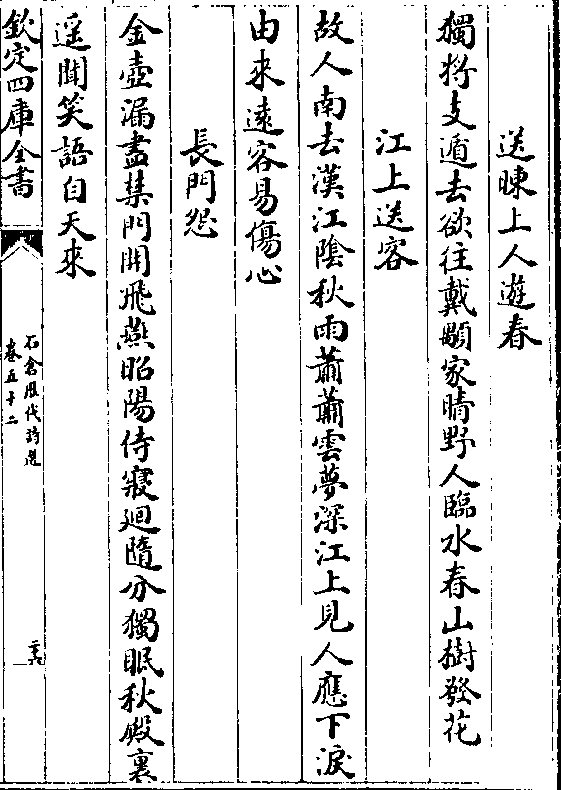 送暕上人遊春
獨將支遁去欲往戴顒家晴野人臨水春山樹發花
江上送客
故人南去漢江陰秋雨蕭蕭雲夢深江上見人應下淚
由來遠客易傷心
長門怨
金壺漏盡禁門開飛燕昭陽侍寢迴隨分獨眠秋殿裏
遥聞笑語自天來
欽定四庫全書
石倉歷代詩選
卷五十二